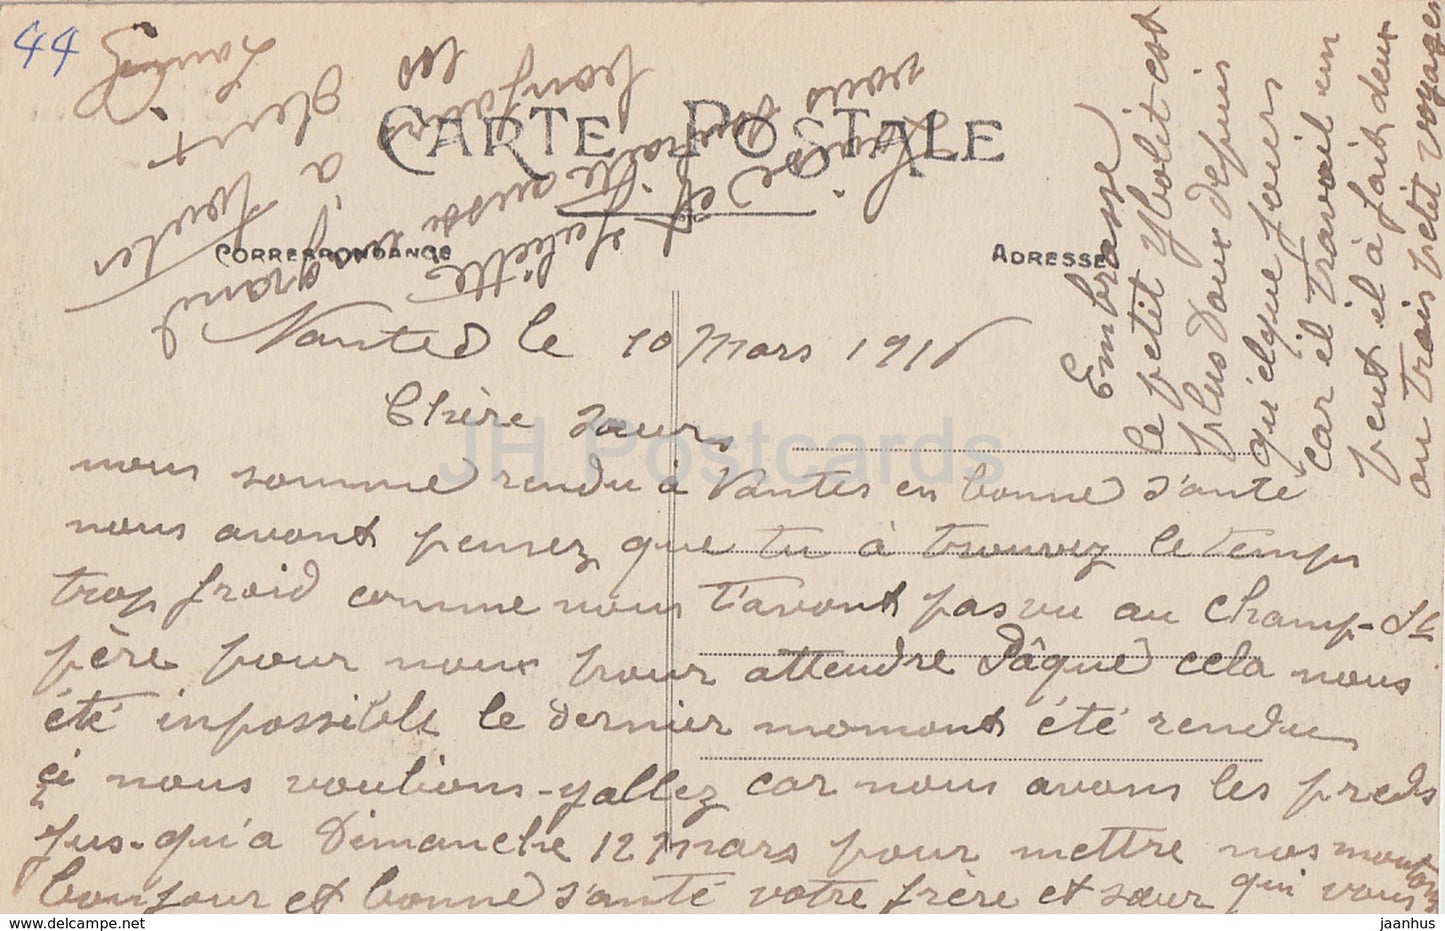 44
CARTE POSTALE
CORRESPONDANCE
ADRESSE
Nantes le 10 Mars 1916
Chère Sœurs
nous somme rendu à Nantes en bonne s'anté
nous avont pensez que tu à trouvez le temps
trop froid comme nous t'avont pas vu au champ-St
père pour nous pour attendre Pâque cela nous
été inpossible le dernier moment été rendu
çi nous voulions-yallez car nous avons les preds
jus-qu'a Dimanche 12 mars pour mettre nos moutons
bonjour et bonne s'anté votre frère et sœur qui vous
Embrasse
le petit ybolit est
plus doux depuis
quelque jours
car il travail un
peut il à fait deux
ou trois petit voyages
Louise et
vous
bonjour
Juliette aussi
les
grand
à
JH Postcards
delcampe.net
jaanhus